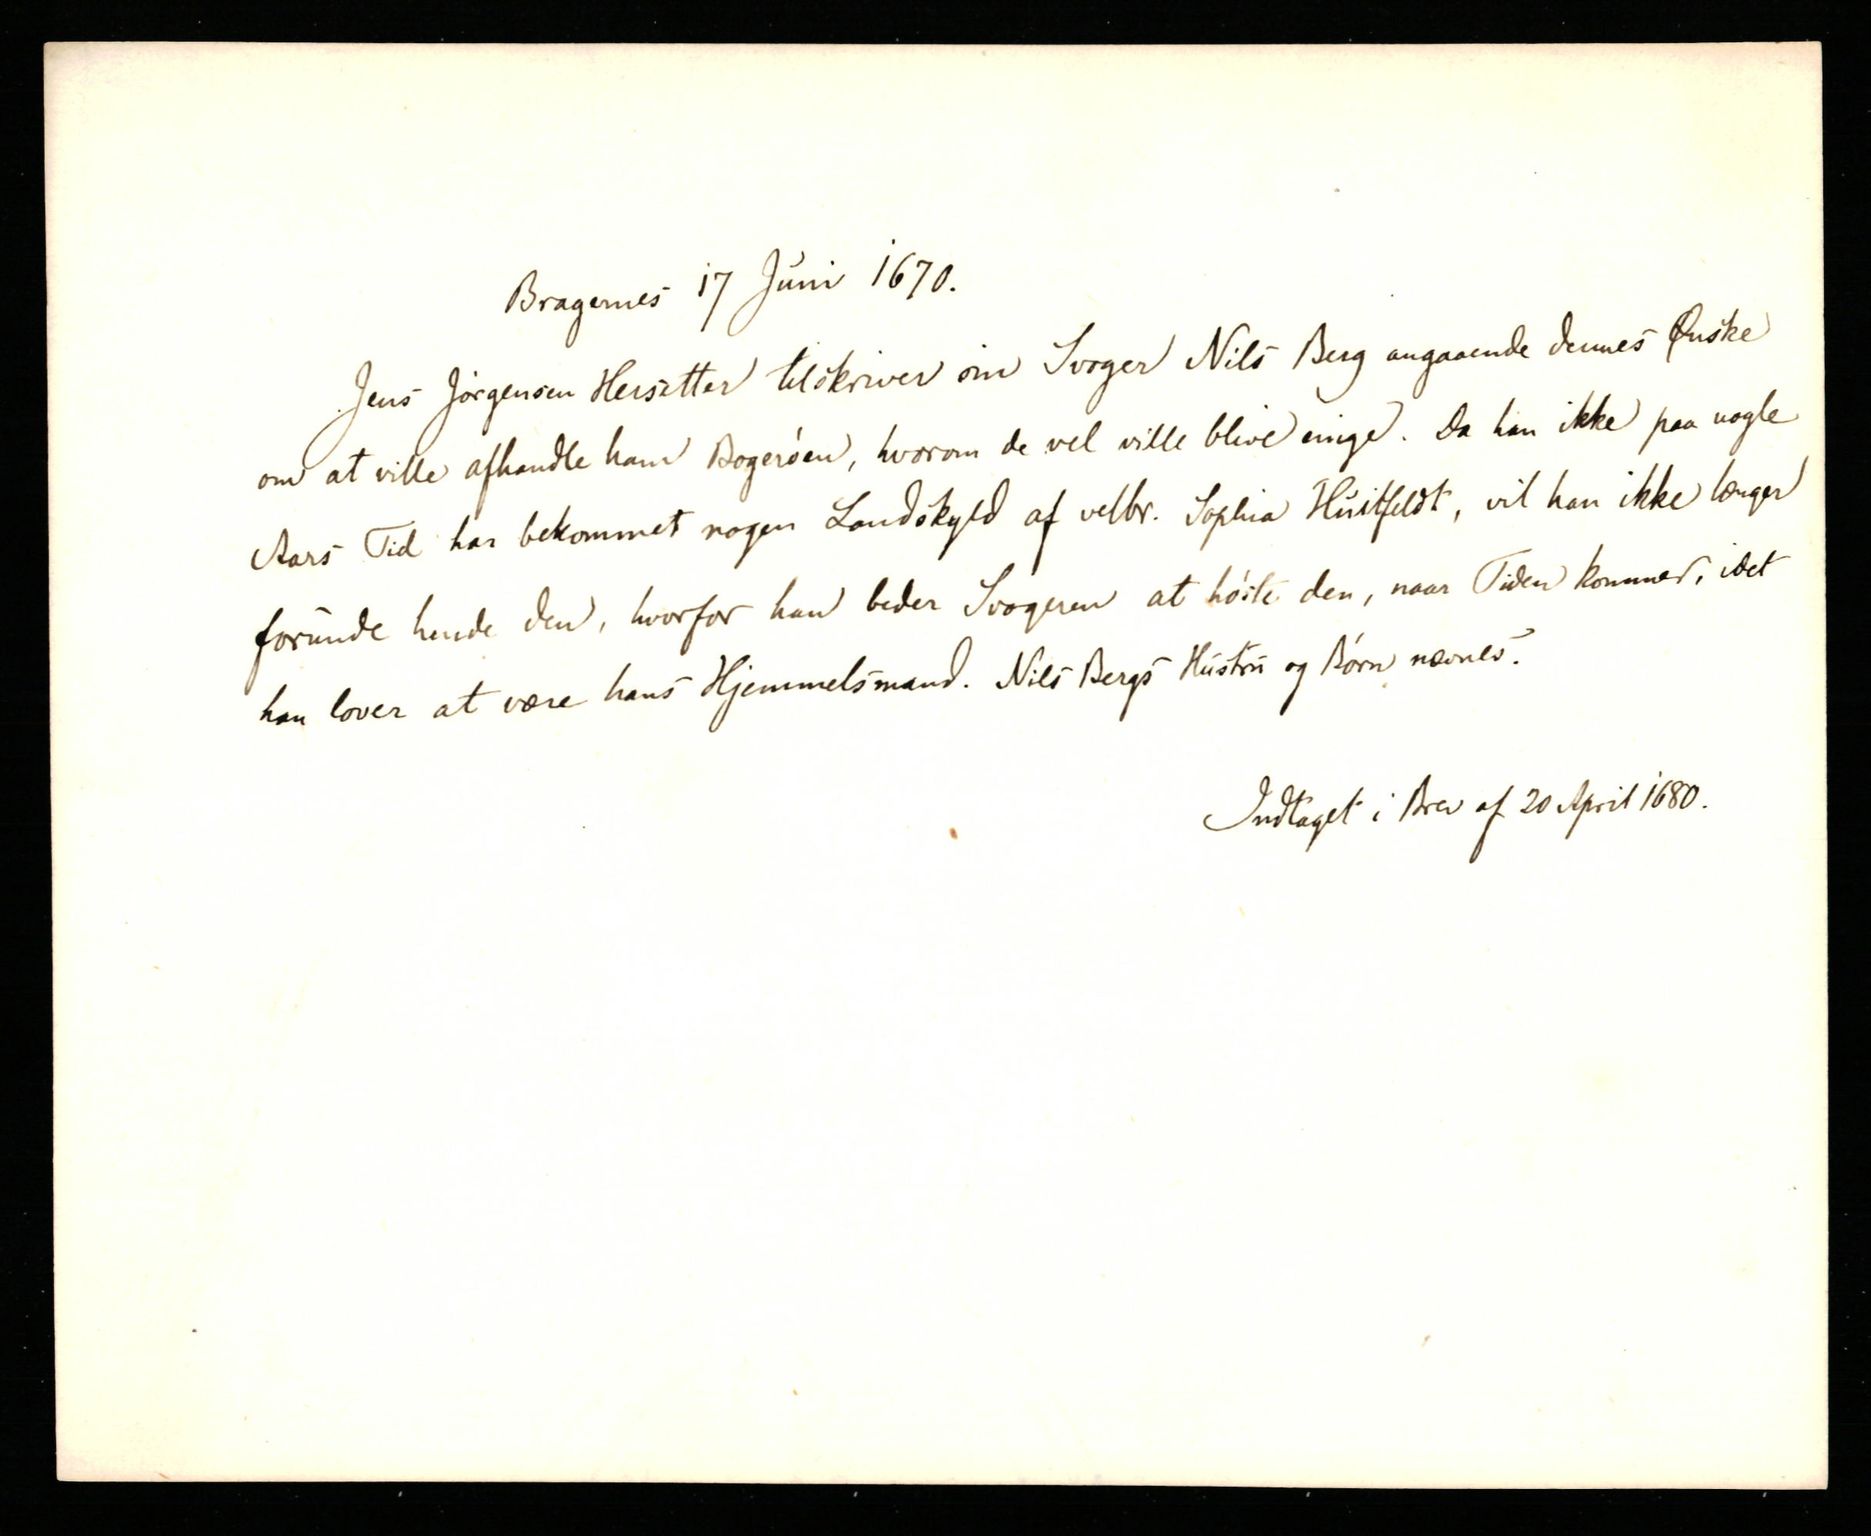 Bragernes 17 Juni 1670.
Jens Jörgensen Hersetter tilskriver sin Svoger Nils Berg angaaende dennes Ønske
om at ville afhandle ham Bogeröen, hvorom de vel ville blive enige. Da han ikke paa nogle
Aars Tid har bekommet nogen Landskyld af velbr. Sophia Huitfeldt, vil han ikke længer
forunde hende den, hvorfor han beder Svogeren at höste den, naar Tiden kommer, idet
han lover at være hans Hjemmelsmand. Nils Bergs Hustru og Börn nævnes.
Indtaget i Brev af 20 April 1680.